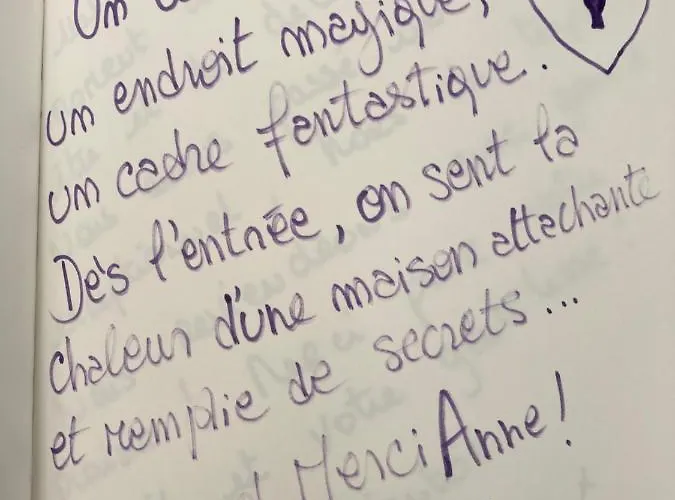 Un
un endroit magique,
un cadre fantastique.
Dès l'entrée, on sent la
chaleur d'une maison attachante
et remplie de secrets...
Merci Anne!